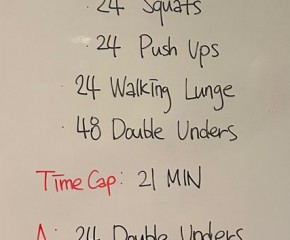 · 24 Squats
· 24 Push Ups
24 Walking Lunge
· 48 Double Unders
Time Cap: 21 MIN
A: 24 Double Unders